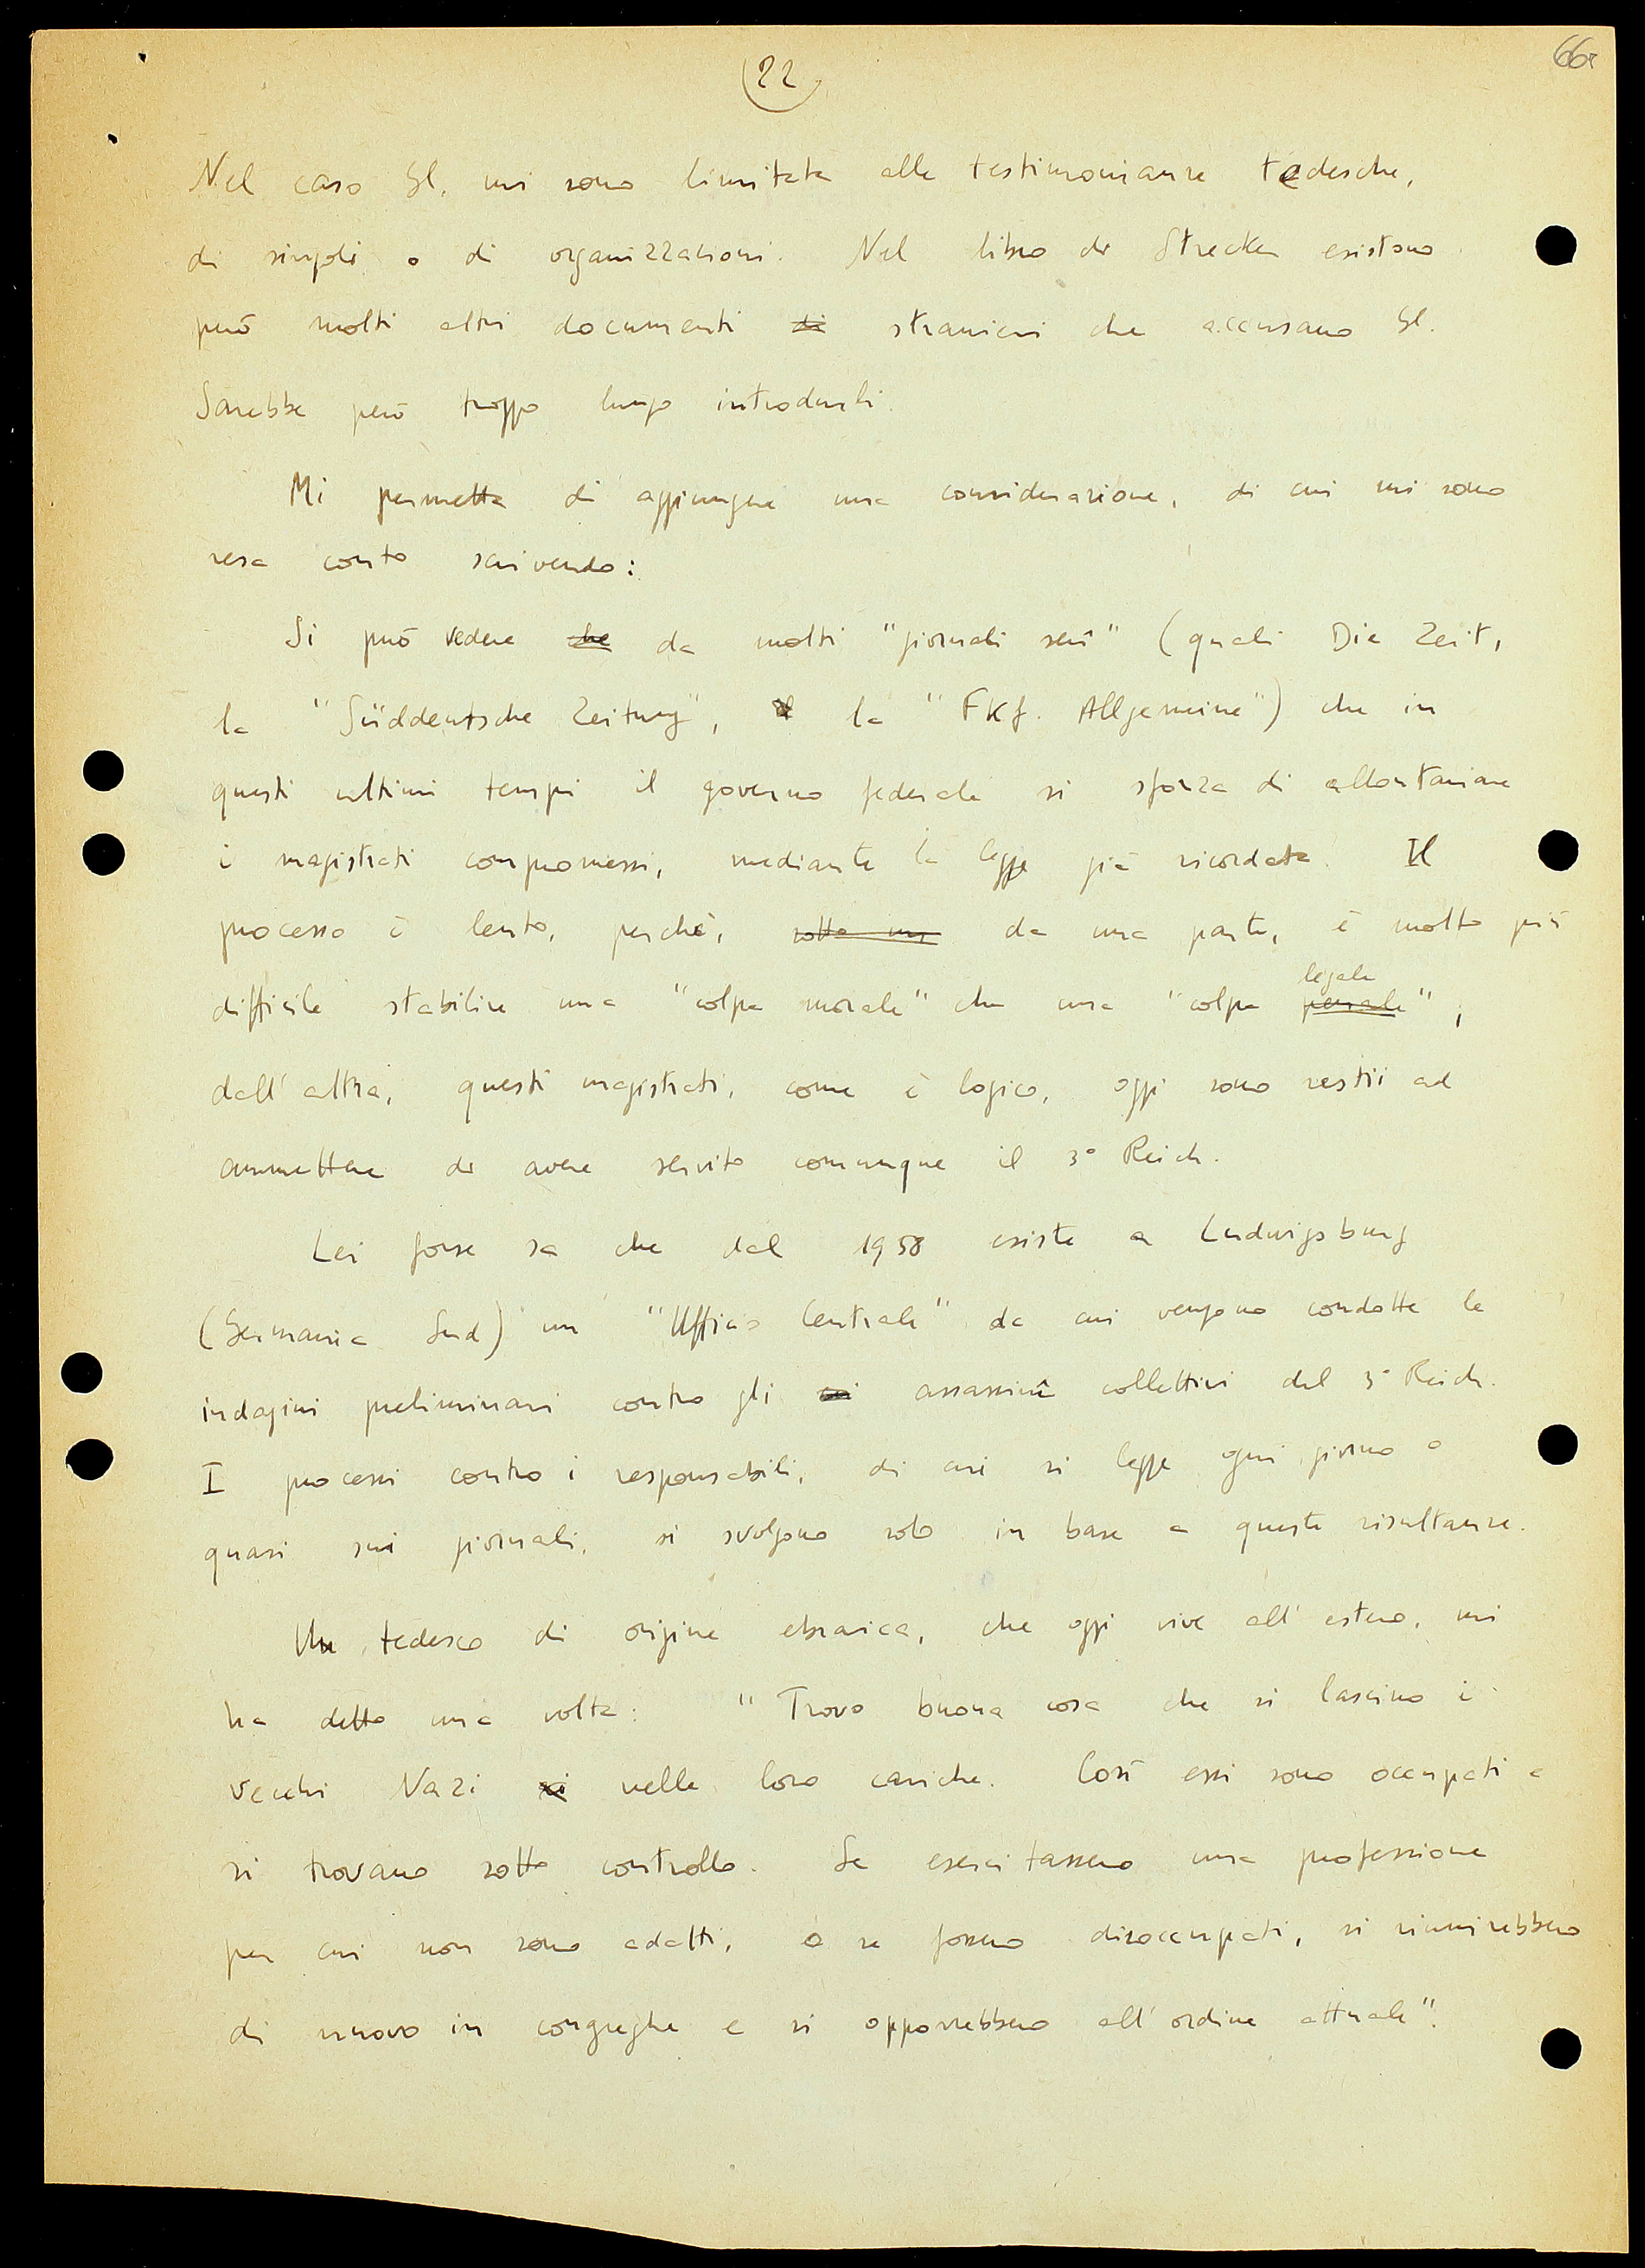 22
66r
Nel caso Gl. mi sono limitata alle testimonianze tedesche,
di singoli o di organizzazioni. Nel libro di Strecker esistono
però molti altri documenti di stranieri che accusano Gl.
Sarebbe però troppo lungo introdurli.
Mi permetta di aggiungere una considerazione, di cui mi sono
resa conto scrivendo:
Si può vedere che da molti "giornali serî" (quali Die Zeit,
la "Süddeutsche Zeitung", la "Fkf. Allgemeine") che in
questi ultimi tempi il governo federale si sforza di allontanare
i magistrati compromessi, mediante la legge già ricordata. Il
processo è lento, perchè, sotto un da una parte, è molto più
difficile stabilire una "colpa morale" che una "colpa penale legale",
dall'altra, questi magistrati, come è logico, oggi sono restii ad
ammettere di avere servito comunque il 3° Reich.
Lei forse sa che dal 1958 esiste a Ludwigsburg
(Germania Sud) un "Ufficio Centrale" da cui vengono condotte le
indagini preliminari contro gli assassinî collettivi del 3° Reich.
I processi contro i responsabili, di cui si legge ogni giorno o
quasi sui giornali, si svolgono solo in base a queste risultanze.
Un tedesco di origine ebraica, che oggi vive all'estero, mi
ha detto una volta: "Trovo buona cosa che si lascino i
vecchi Nazi si nelle loro cariche. Così essi sono occupati e
si trovano sotto controllo. Se esercitassero una professione
per cui non sono adatti, o se fossero disoccupati, si riunirebbero
di nuovo in congreghe e si opporrebbero all'ordine attuale".